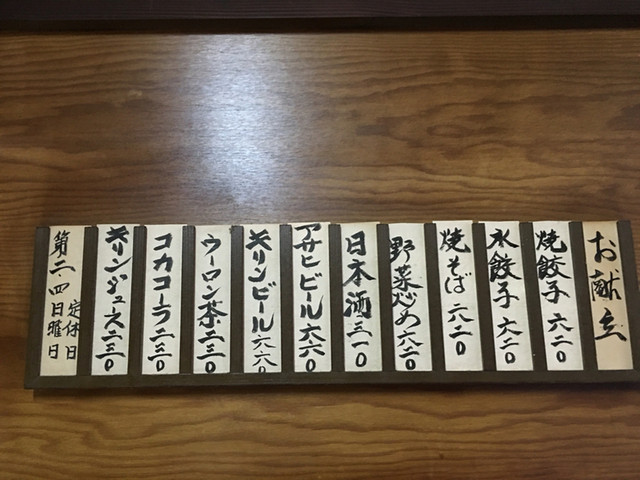 お献立
焼餃子 六二〇
水餃子 六二〇
焼そば 六二〇
野菜炒め 六二〇
日本酒 三一〇
アサヒビール 六六〇
キリンビール 六六〇
ウーロン茶 二三〇
コカコーラ 二三〇
キリンジュース 二三〇
第二・四日曜日
定休日